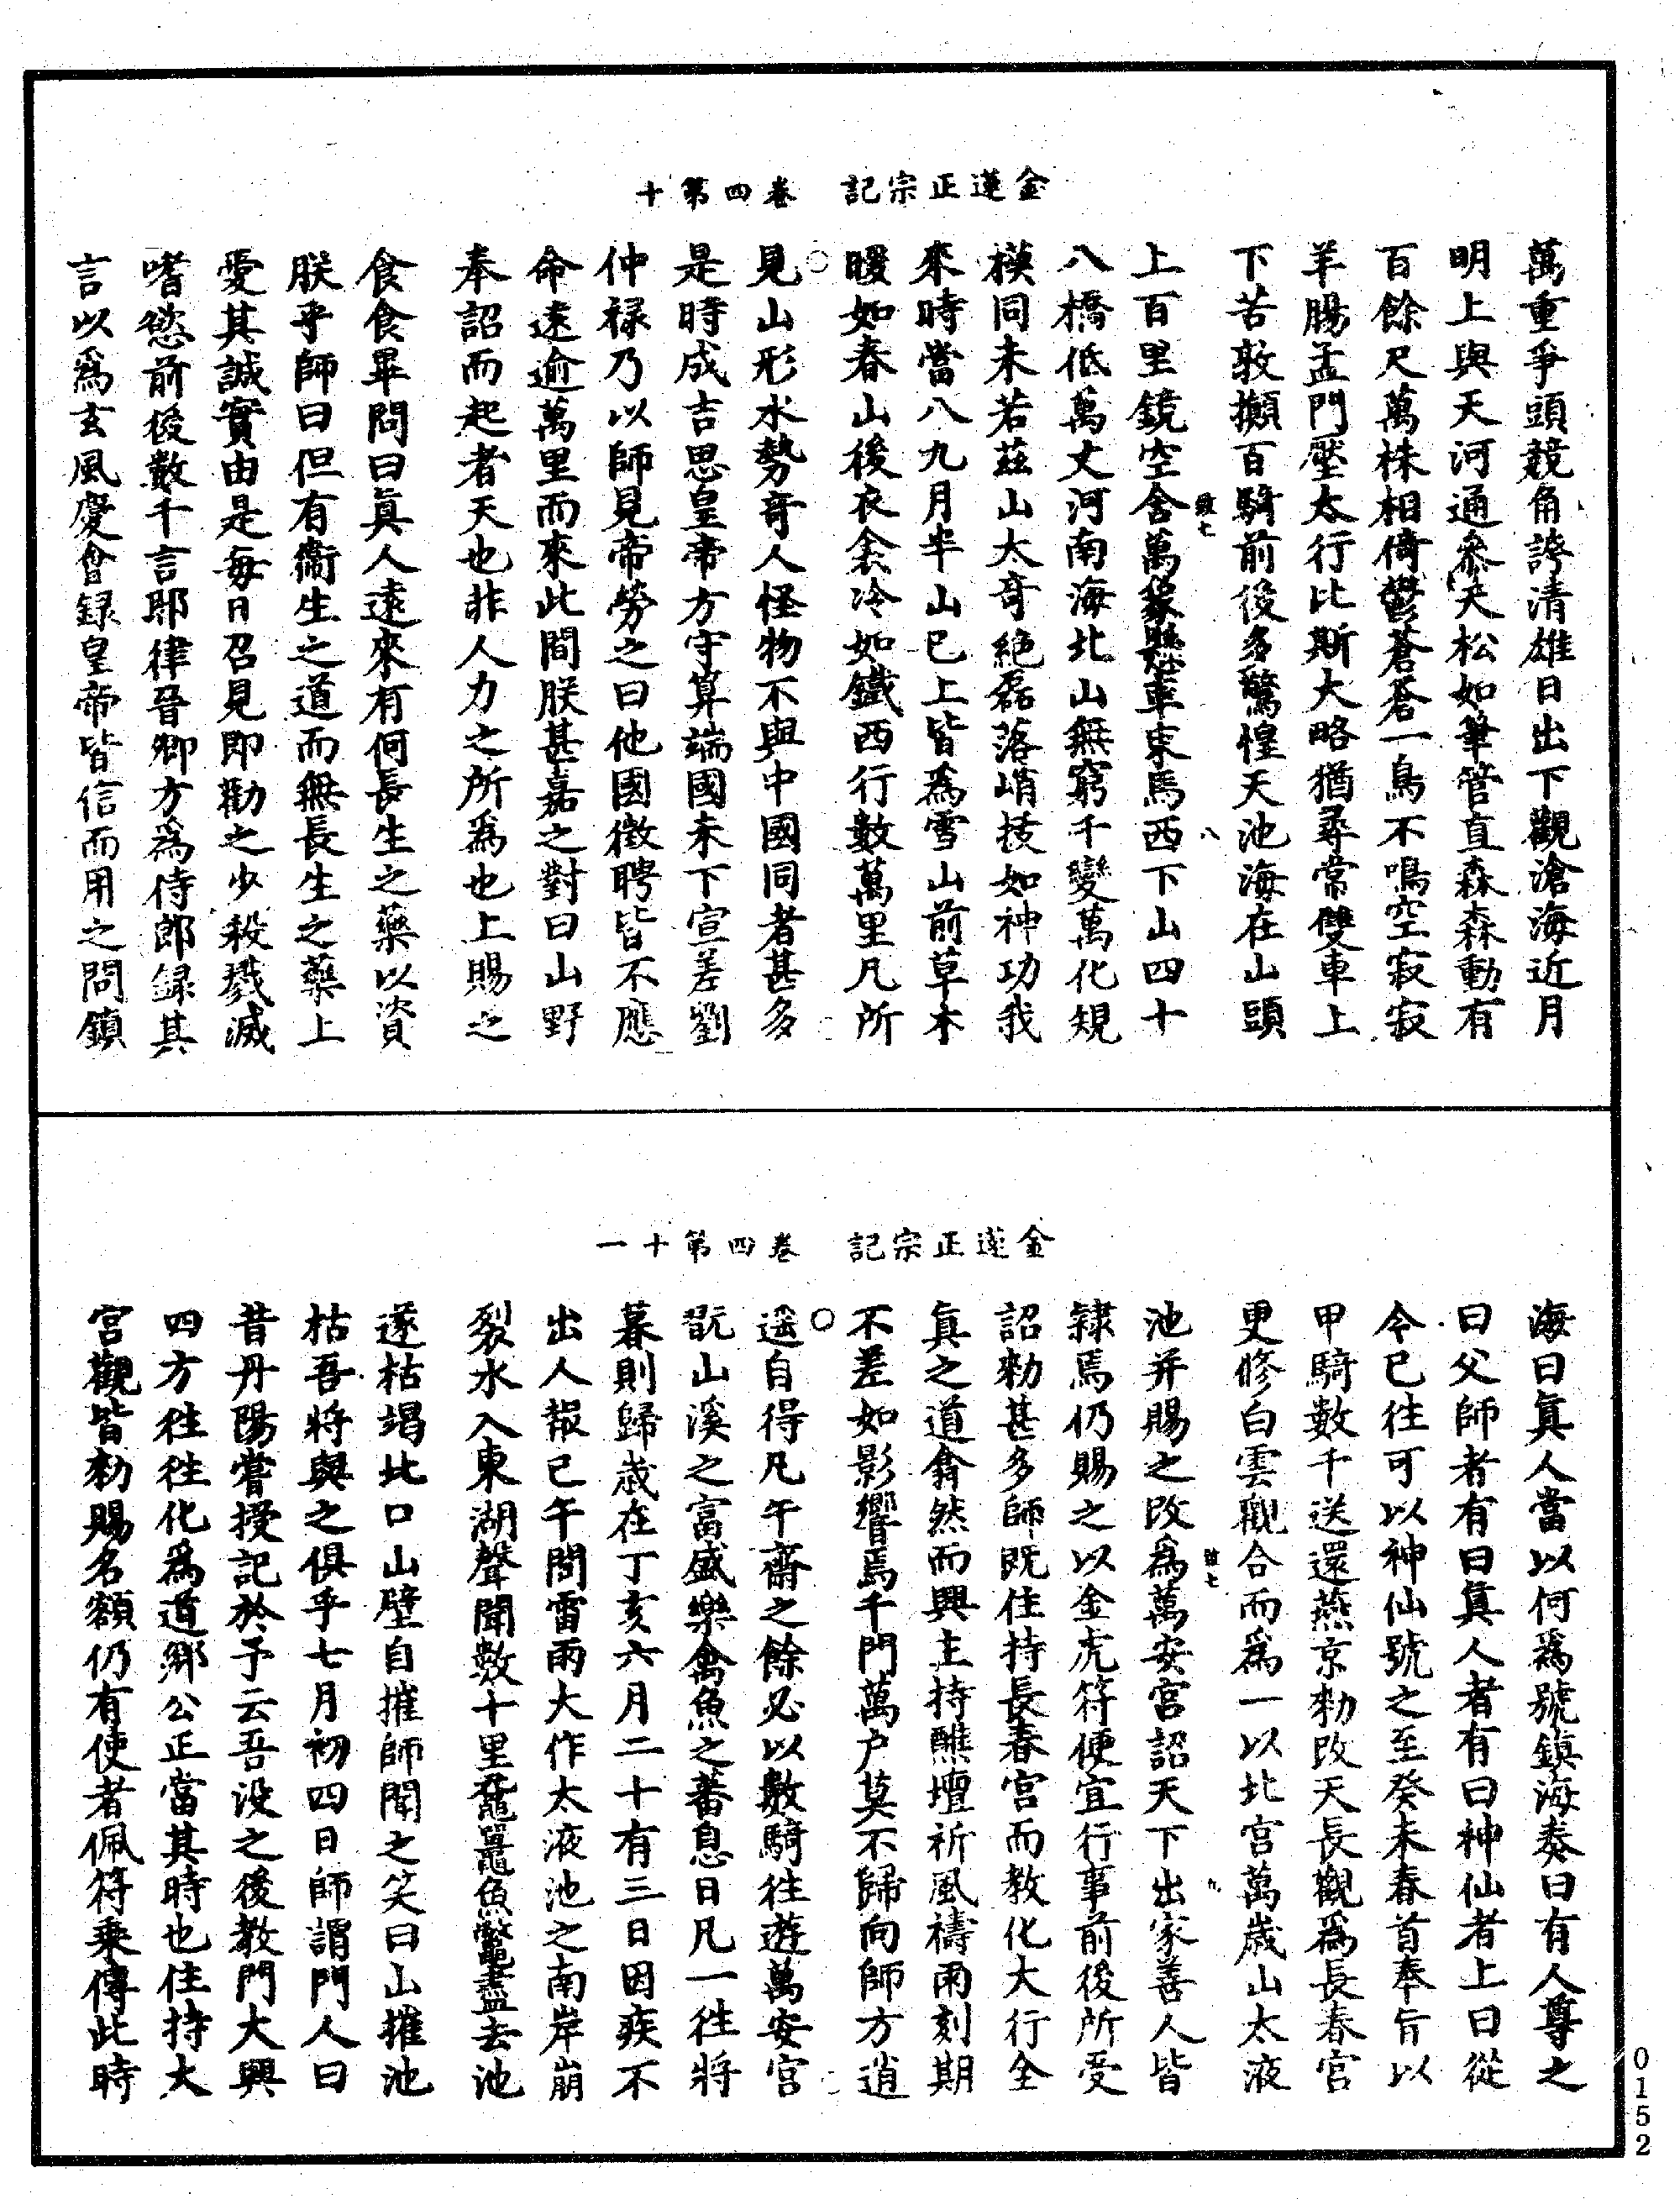 金蓮正宗記　卷四第十
萬重爭頭競角誇清雄日出下觀滄海近月
明上與天河通參天松如筆管直森森動有
百餘尺萬株相倚鬱蒼蒼一鳥不鳴空寂寂
羊腸孟門壓太行比斯大略猶尋常雙車上
下苦敦攧百騎前後多驚惶天池海在山頭
上百里鏡空含萬象懸車束馬西下山四十
八橋低萬丈河南海北山無窮千變萬化規
模同未若茲山太奇絕磊落峭拔如神功我
來時當八九月半山已上皆爲雪山前草木
暖如春山後衣衾冷如鐵西行數萬里凡所
見山形水勢奇人怪物不與中國同者甚多
是時成吉思皇帝方守算端國未下宣差劉
仲祿乃以師見帝勞之曰他國徵聘皆不應
命遠逾萬里而來此間朕甚嘉之對曰山野
奉詔而起者天也非人力之所爲也上賜之
食食畢問曰真人遠來有何長生之藥以資
朕乎師曰但有衞生之道而無長生之藥上
愛其誠實由是每日召見即勸之少殺戮減
嗜慾前後數千言耶律晉卿方爲侍郎録其
言以爲玄風慶會録皇帝皆信而用之問鎮
致七
八
金蓮正宗記　卷四第十一
海曰真人當以何爲號鎮海奏曰有人尊之
曰父師者有曰真人者有曰神仙者上曰從
今已往可以神仙號之至癸未春首奉旨以
甲騎數千送還燕京勑改天長觀爲長春宮
更修白雲觀合而爲一以北宮萬歲山太液
池并賜之改爲萬安宮詔天下出家善人皆
隸焉仍賜之以金虎符便宜行事前後所受
詔勑甚多師既住持長春宮而教化大行全
真之道翕然而興主持醮壇祈風禱雨刻期
不差如影響焉千門萬户莫不歸向師方逍
遥自得凡午齋之餘必以數騎往遊萬安宮
翫山溪之富盛樂禽魚之蕃息日凡一往將
暮則歸歲在丁亥六月二十有三日因疾不
出人報已午間雷雨大作太液池之南岸崩
裂水入東湖聲聞數十里黿鼉魚鱉盡去池
遂枯竭北口山壁自摧師聞之笑曰山摧池
枯吾將與之俱乎七月初四日師謂門人曰
昔丹陽嘗授記於予云吾没之後教門大興
四方往往化爲道鄉公正當其時也住持大
宮觀皆勑賜名額仍有使者佩符乗傳此時
致七
九
0152